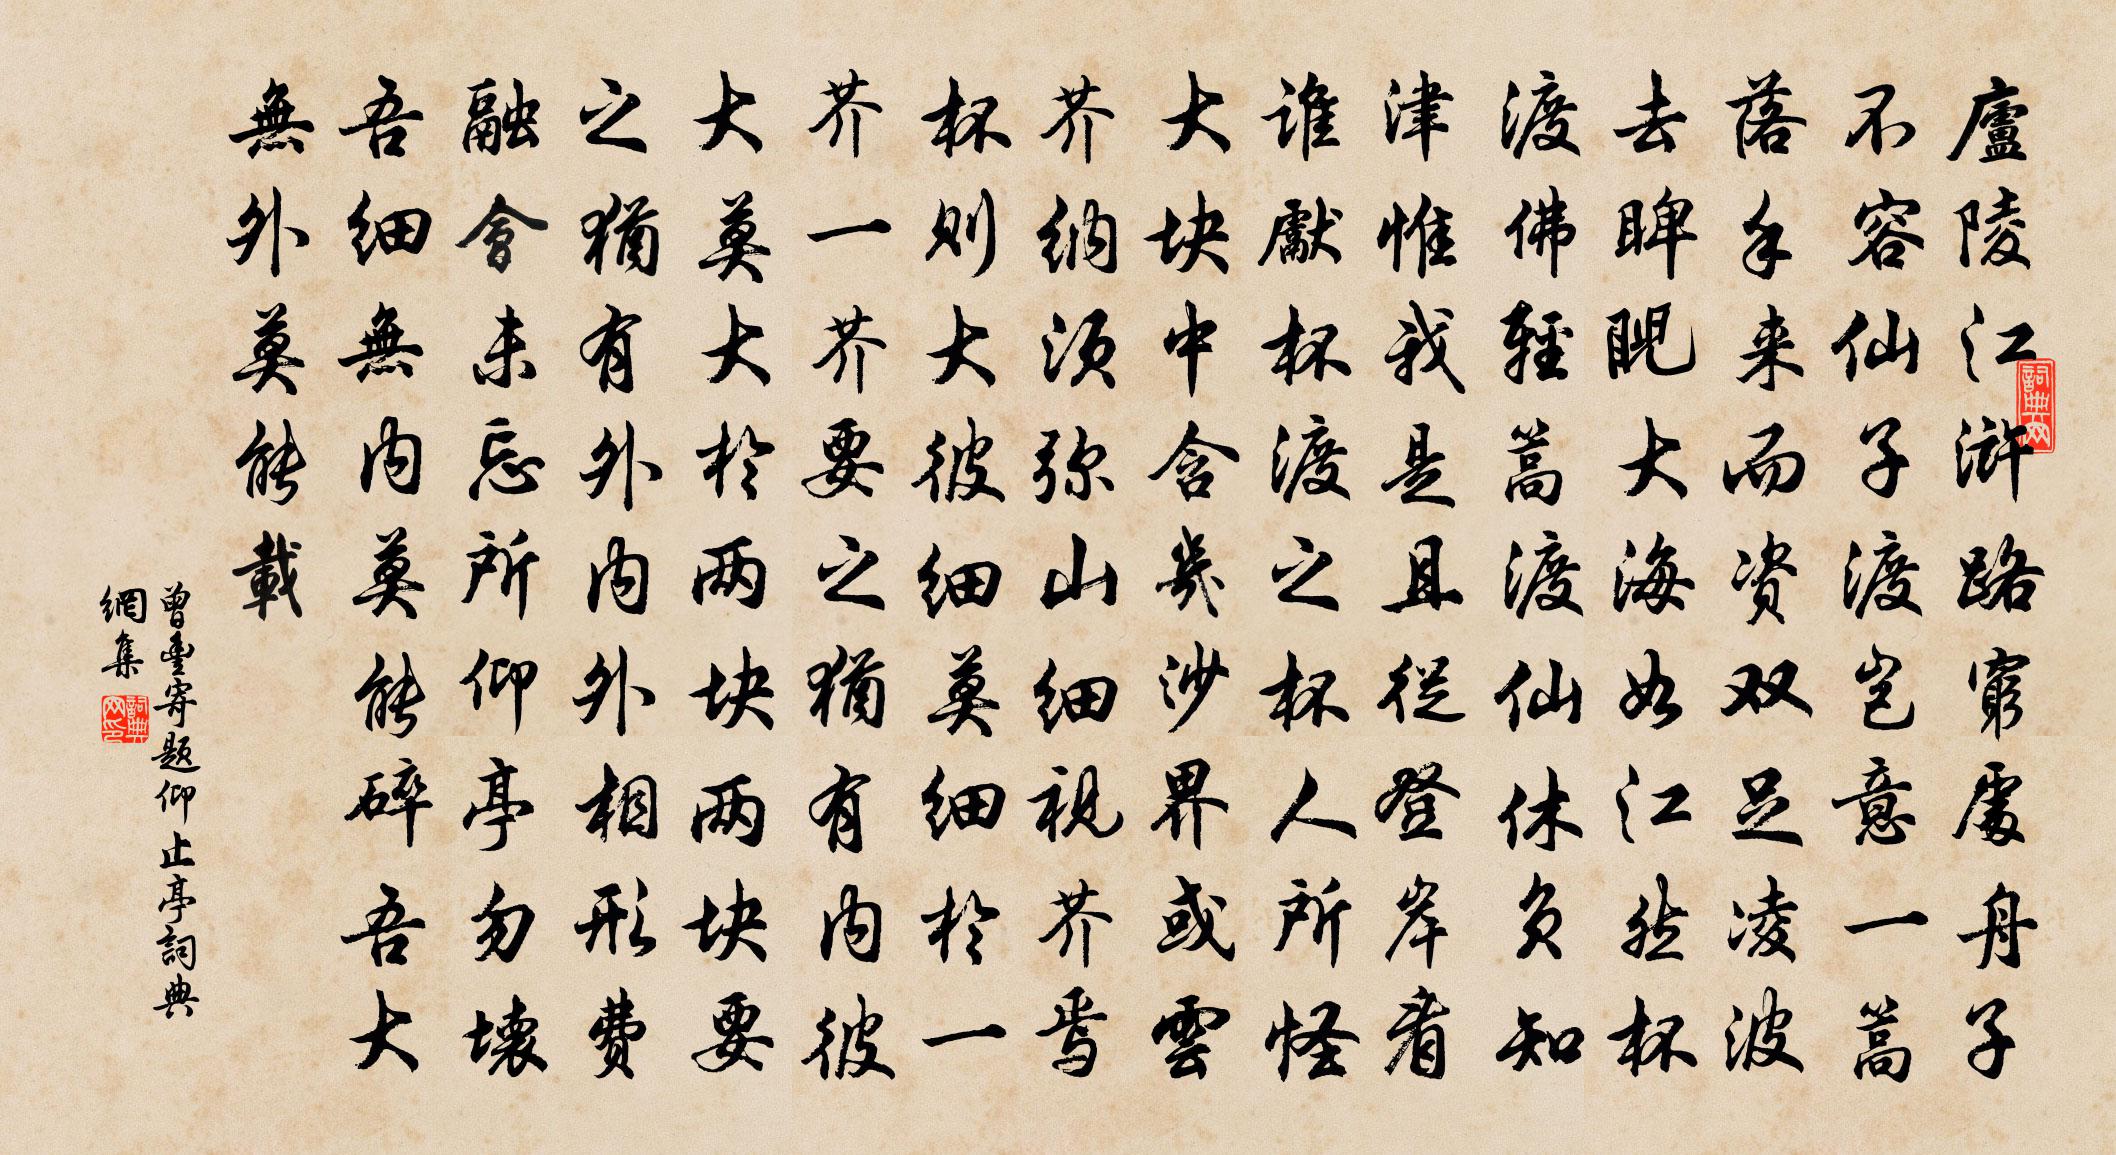 廬陵江滸路窮處舟子
不容仙子渡豈意一蒿
落手来而资双足凌波
去睥睨大海如江然杯
渡佛輕蒿渡仙休負知
津惟我是且從登岸看
谁獻杯渡之杯人所怪
大块中含幾沙界或雲
芥纳须弥山細視芥焉
杯则大彼細莫細於一
芥一芥要之猶有内彼
大莫大於两块两块要
之猶有外内外相形費
融會未忘所仰亭勿壊
吾細無内莫能碎吾大
無外莫能載
曾豊寄题仰止亭詞典
網集
詞典网
詞典网印